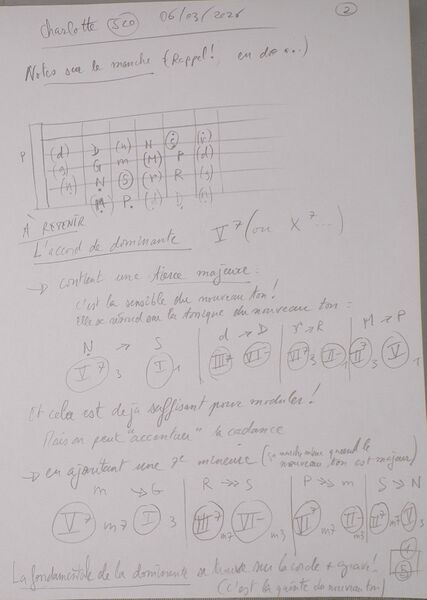 Charlotte 06/03/2026 2
Notes sur le manche (Rappel!, en do ...)
P (d) D (n) N (r)
(s) G m (M) P (d)
(n) N S (r) R (s)
M P
À RETENIR
L'accord de dominante V7 (ou X7...)
→ contient une tierce majeure.
C'est la sensible du nouveau ton!
Elle se résoud sur la tonique du nouveau ton:
N → S d → D r → R M → P
V7 3 I 1 III7 VI- VI7 3 II- 1 II7 3 V 1
Et cela est déjà suffisant pour moduler!
Mais on peut "accentuer" la cadence
→ en ajoutant une 7e mineure (ça même quand le
nouveau ton est majeur)
m → G R → S P → m S → N
V7 m7 I 3 III7 m7 VI- 3 VI7 m7 II- 3 II7 m7 V 3
La fondamentale de la dominante se trouve sur la corde + grave!
(C'est la quinte du nouveau ton)
1
5